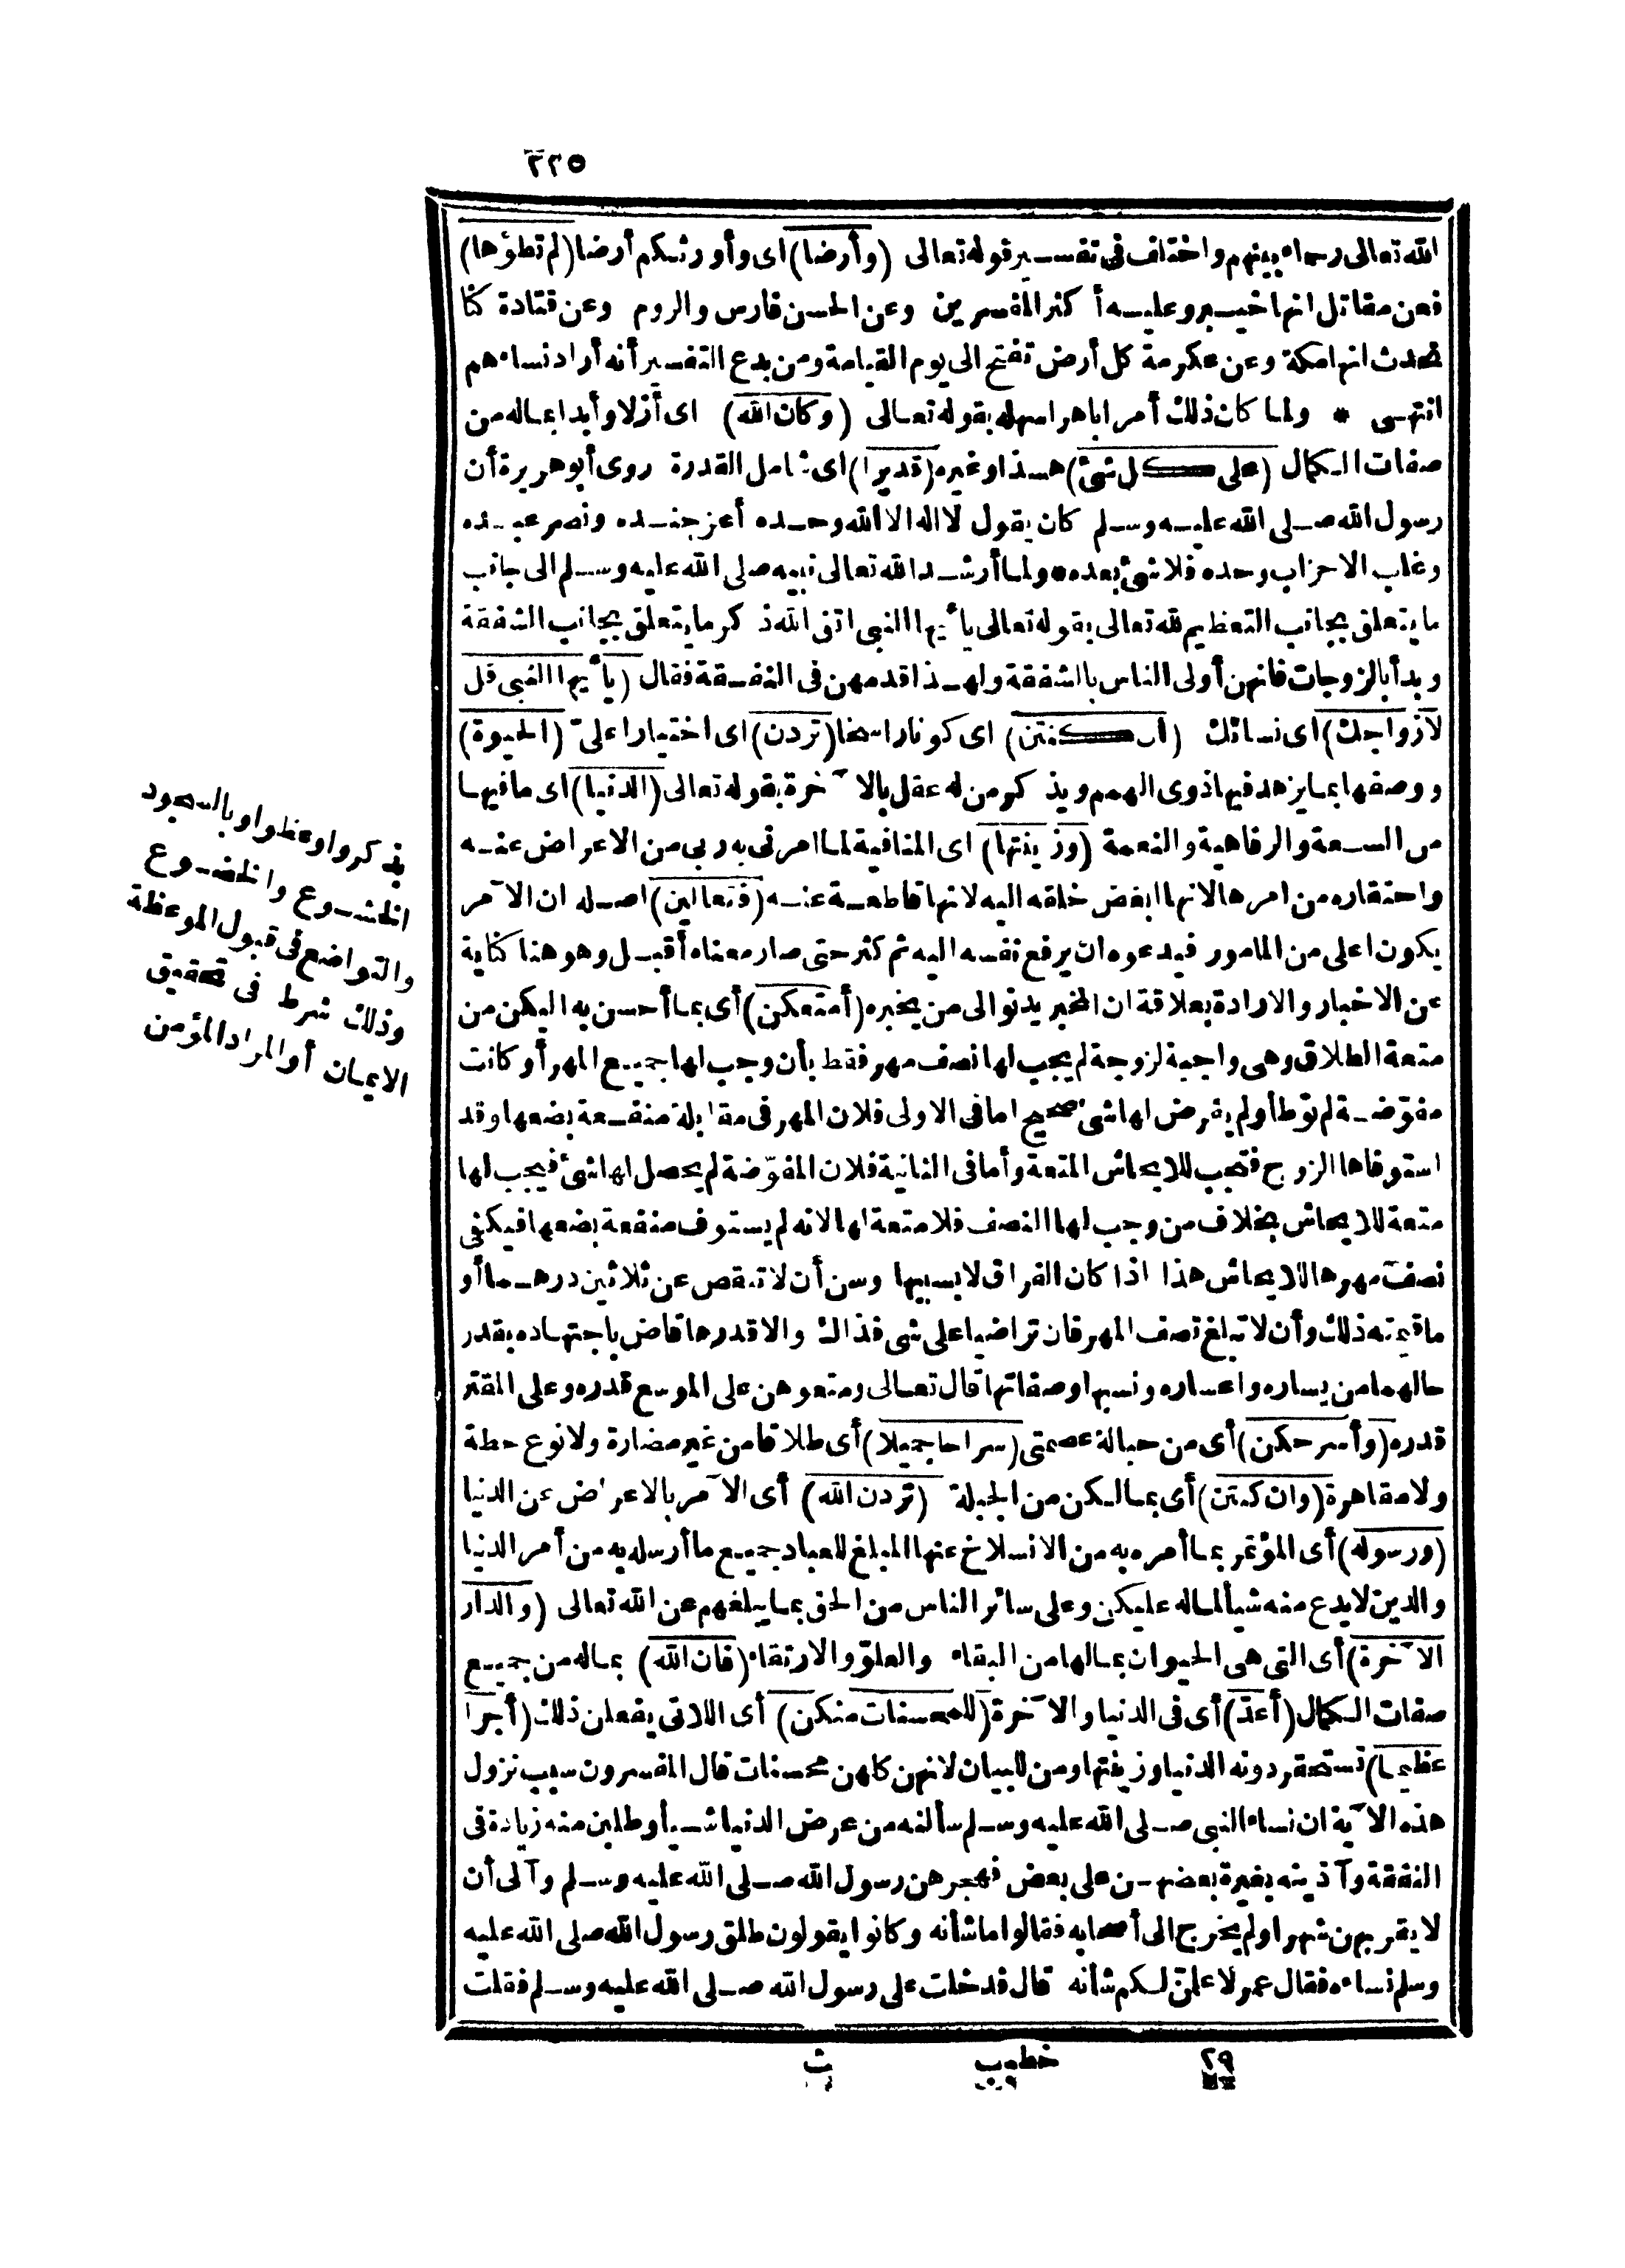 ٢٢٥
الله تعالى رحماء بينهم واختلف فى تفسير قوله تعالى (وأرضا) اى وأورثكم أرضا (لم تطؤها)
فعن مقاتل انها خيبر وعليه أكثر المفسرين وعن الحسن فارس والروم وعن قتادة كنا
نحدث انها مكة وعن عكرمة كل أرض تفتح الى يوم القيامة ومن بدع التفسير أنه أراد نساءهم
انتهى * ولما كان ذلك أمرا باهرا سهله بقوله تعالى (وكان الله) اى أزلا وأبدا بماله من
صفات الكمال (على كل شئ) هذا وغيره (قديرا) اى شامل القدرة روى أبو هريرة أن
رسول الله صلى الله عليه وسلم كان يقول لا اله الا الله وحده أعز جنده ونصر عبده
وغلب الاحزاب وحده فلا شئ بعده * ولما أرشد الله تعالى نبيه صلى الله عليه وسلم الى جانب
ما يتعلق بجانب التعظيم لله تعالى بقوله تعالى يا أيها النبى اتق الله ذكر ما يتعلق بجانب الشفقة
وبدأ بالزوجات فانهن أولى الناس بالشفقة ولهذا قدمهن فى النفقة فقال (يا أيها النبى قل
لازواجك) اى نسائك (ان كنتن) اى كونا راسخا (تردن) اى اختيارا علىّ (الحيوة)
ووصفها بما يزهد فيها ذوى الهمم ويذكر من له عقل بالآخرة بقوله تعالى (الدنيا) اى ما فيها
من السعة والرفاهية والنعمة (وزينتها) اى المنافية لما امرنى به ربى من الاعراض عنه
واحتقاره من امرها لانها ابغض خلقه اليه لانها قاطعة عنه (فتعالين) اصله ان الآمر
يكون اعلى من المامور فيدعوه ان يرفع نفسه اليه ثم كثر حتى صار معناه أقبل وهو هنا كناية
عن الاخبار والارادة بعلاقة ان المخبر يدنو الى من يخبره (أمتعكن) أى بما أحسن به اليكن من
متعة الطلاق وهى واجبة لزوجة لم يجب لها نصف مهر فقط بأن وجب لها جميع المهر أو كانت
مفوّضة لم توطأ ولم يفرض لها شئ صحيح اما فى الاولى فلان المهر فى مقابلة منفعة بضعها وقد
استوفاها الزوج فتجب للايحاش المتعة وأما فى الثانية فلان المفوّضة لم يحصل لها شئ فيجب لها
متعة للايحاش بخلاف من وجب لها النصف فلا متعة لها لانه لم يستوف منفعة بضعها فيكفى
نصف مهرها للايحاش هذا اذا كان الفراق لا بسببها وسن أن لا تنقص عن ثلاثين درهما أو
ما قيمته ذلك وأن لا تبلغ نصف المهر فان تراضيا على شى فذاك والا قدرها قاض باجتهاده بقدر
حالهما من يساره واعساره ونسبها وصفاتها قال تعالى ومتعوهن على الموسع قدره وعلى المقتر
قدره (وأسرحكن) أى من حبالة عصمتى (سراحا جميلا) أى طلاقا من غير مضارة ولا نوع حطة
ولا مقاهرة (وان كنتن) أى بمالكن من الجبلة (تردن الله) أى الآمر بالاعراض عن الدنيا
(ورسوله) أى المؤتمر بما أمره به من الانسلاخ عنها المبلغ للعباد جميع ما أرسله به من أمر الدنيا
والدين لا يدع منه شيأ لماله عليكن وعلى سائر الناس من الحق بما يبلغهم عن الله تعالى (والدار
الآخرة) أى التى هى الحيوان بمالها من البقاء والعلوّ والارتقاء (فان الله) بماله من جميع
صفات الكمال (أعدّ) أى فى الدنيا والآخرة (للمحسنات منكن) أى اللاتى يفعلن ذلك (أجرا
عظيما) تستحقر دونه الدنيا وزينتها ومن للبيان لانهن كلهن محسنات قال المفسرون سبب نزول
هذه الآية ان نساء النبى صلى الله عليه وسلم سألنه من عرض الدنيا شيأ وطلبن منه زيادة فى
النفقة وآذينه بغيرة بعضهن على بعض فهجرهن رسول الله صلى الله عليه وسلم وآلى أن
لا يقربهن شهرا ولم يخرج الى أصحابه فقالوا ما شأنه وكانوا يقولون طلق رسول الله صلى الله عليه
وسلم نساءه فقال عمر لاعلمنّ لكم شأنه قال فدخلت على رسول الله صلى الله عليه وسلم فقلت
ذكروا وعظوا وبالسجود
الخشوع والخضوع
والتواضع فى قبول الموعظة
وذلك شرط فى تحقيق
الايمان أو المراد المؤمن
٢٩ خطيب ث